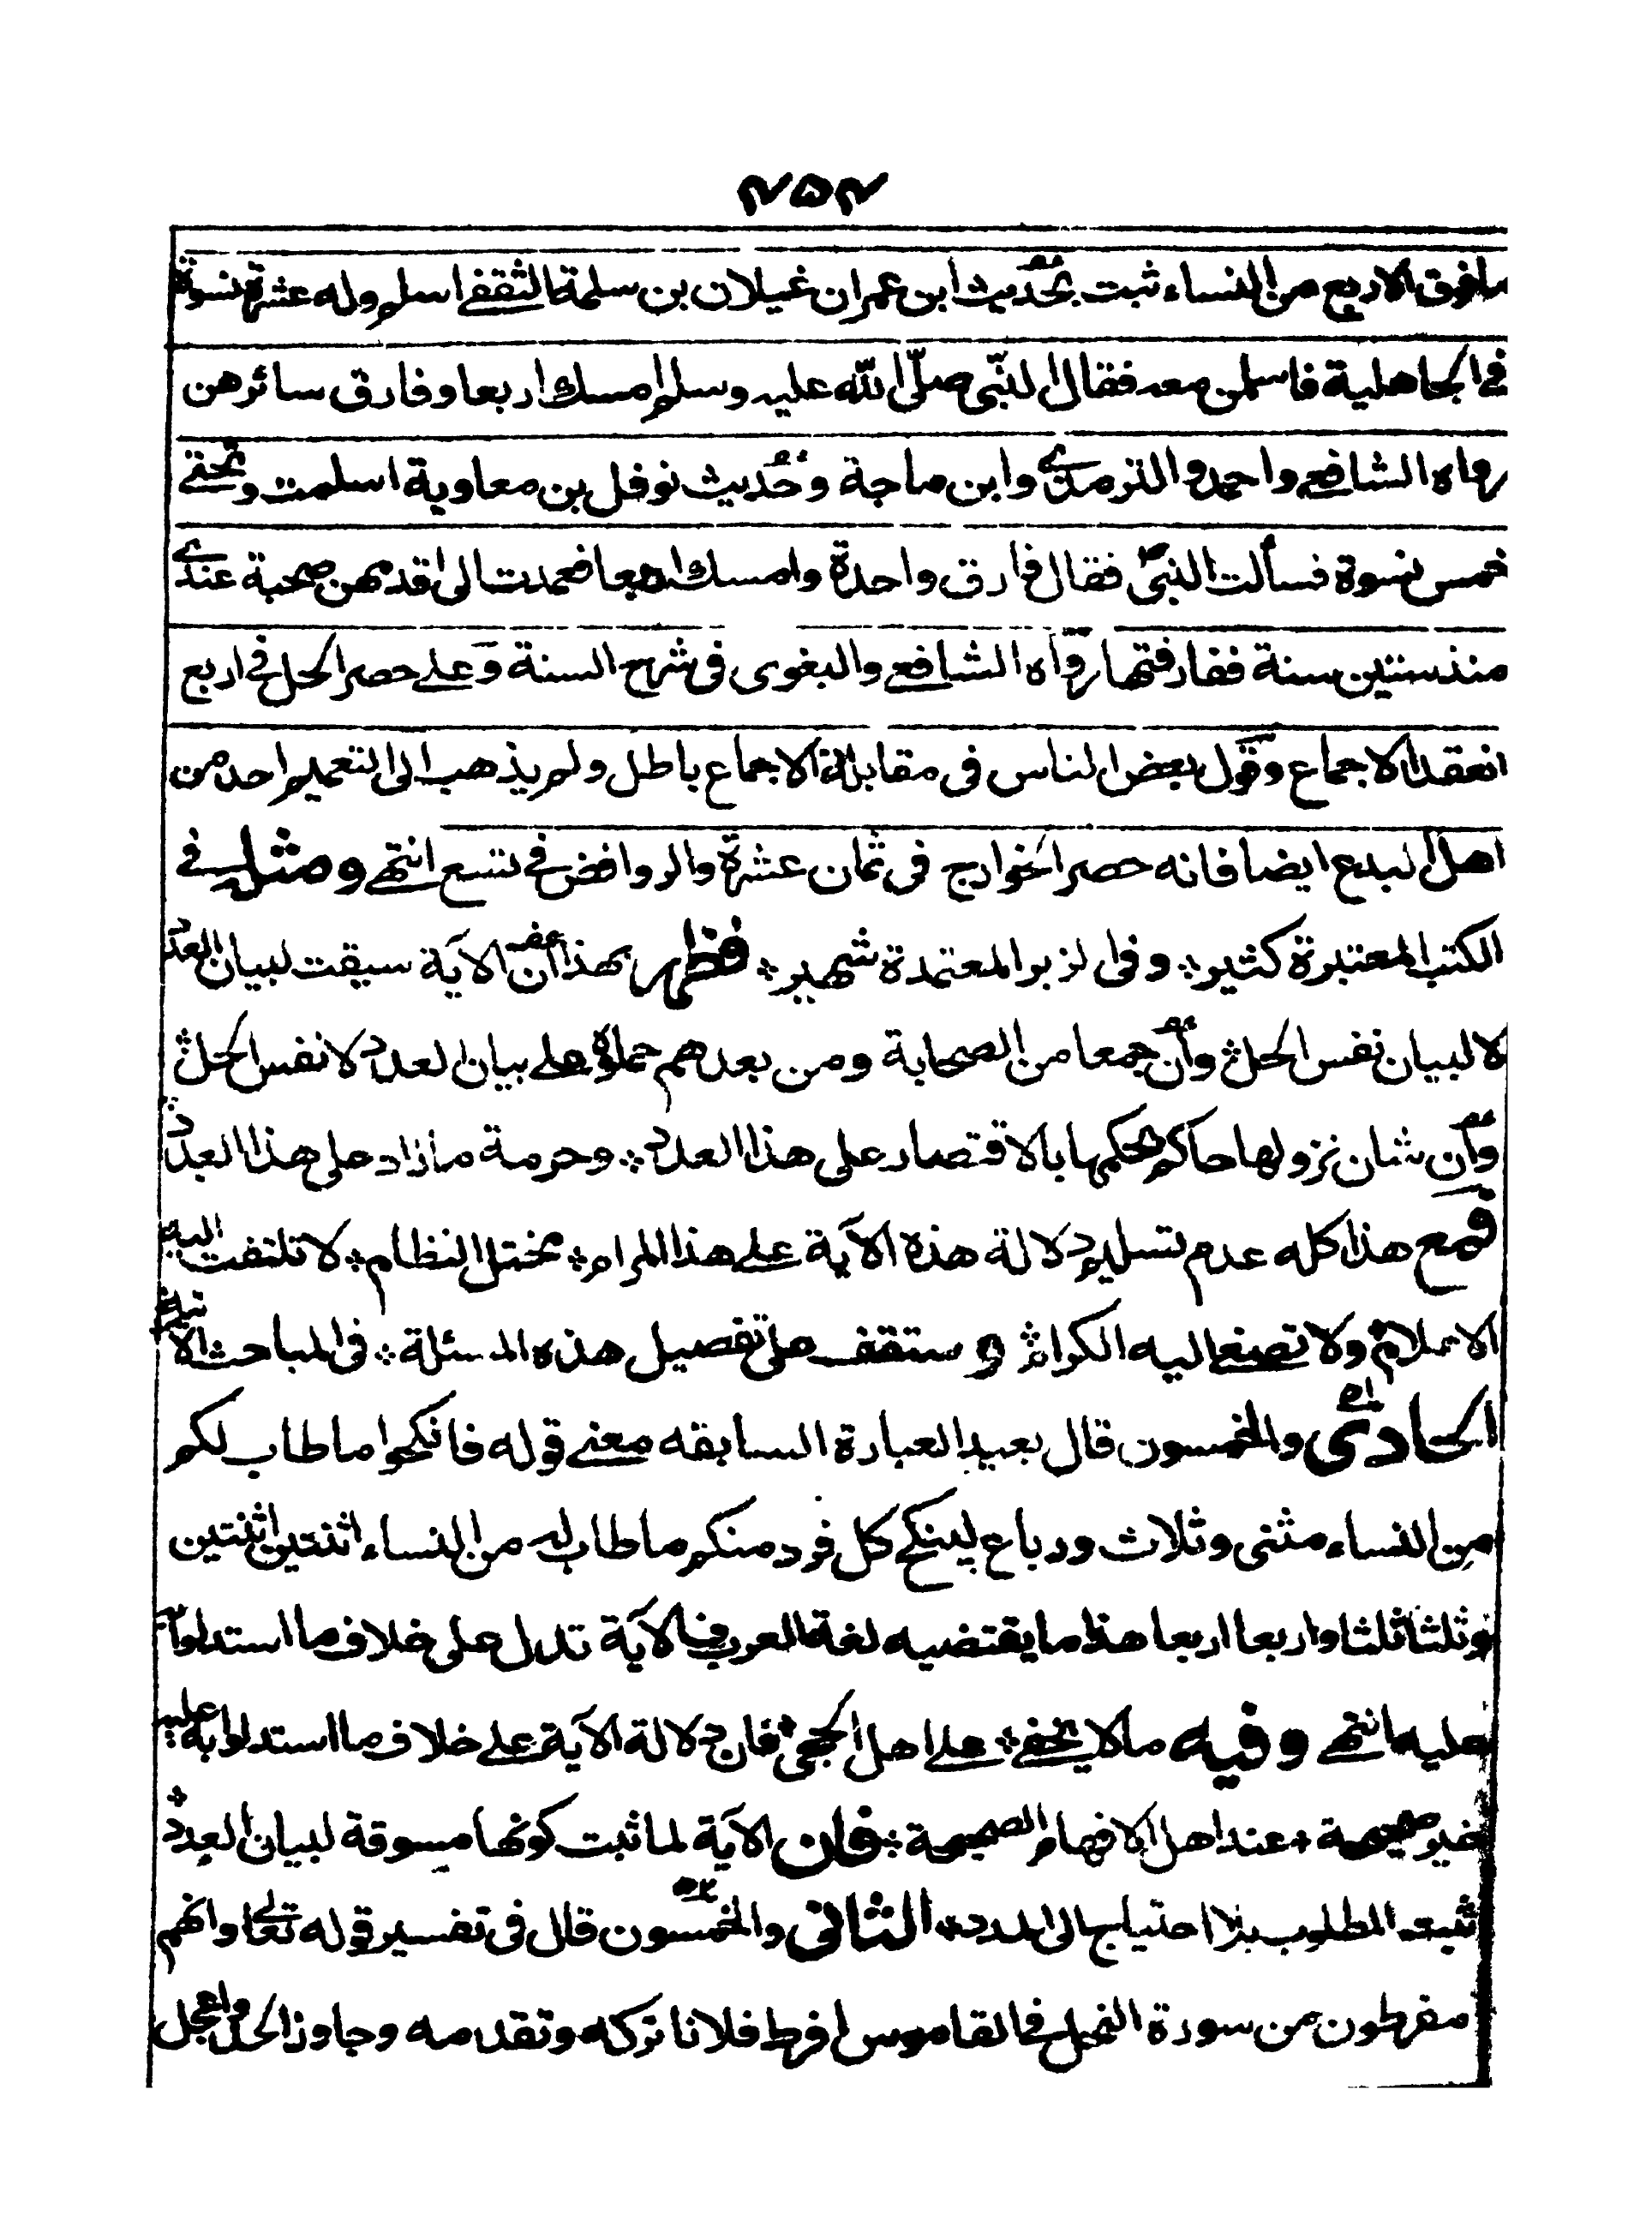 ٢٥٢
ما فوق الاربع من النساء ثبت بحديث ابن عمران غيلان بن سلمة الثقفے اسلم وله عشرة نسوة
فے الجاهلية فاسلمن معه فقال النبى صلّى الله عليه وسلم امسك اربعا وفارق سائرهن
رواه الشافعے واحمد والترمذے وابن ماجة وحديث نوفل بن معاوية اسلمت وتحتے
خمس نسوة فسألت النبى فقال فارق واحدة وامسك اربعا فعمدت الى اقدمهن صحبة عندے
منذ ستين سنة ففارقتها رواه الشافعے والبغوى فى شرح السنة وعلے حصر الحل فے اربع
انعقد الاجماع وقول بعض الناس فى مقابلة الاجماع باطل ولم يذهب الى التعميم احد من
اهل البدع ايضا فانه حصر الخوارج فى ثمان عشرة والروافض فے تسع انتهے ومثله فے
الكتب المعتبرة كثير؞ وفى الزبر المعتمدة شهير؞ فظهر بهذا ان الاية سيقت لبيان العدد
لا لبيان نفس الحل؞ وان جمعا من الصحابة ومن بعدهم حملوه علے بيان العدد لا نفس الحل؞
وان شان نزولها حاكم بحكمها بالاقتصار على هذا العدد؞ وحرمة ما زاد على هذا العدد؞
فمع هذا كله عدم تسليم دلالة هذه الآية علے هذا المرام؞ مختل النظام؞ لا تلتفت اليه
الاعلام؞ ولا تصغے اليه الكرام؞ وستقف على تفصيل هذه المسئلة؞ فى المباحث الآتية
الحادى والخمسون ٥١ قال بعيد العبارة السابقه معنے قوله فانكحوا ما طاب لكم
من النساء مثنى وثلاث ورباع لينكح كل فرد منكم ما طاب له من النساء اثنتين اثنتين
وثلثا ثلثا واربعا اربعا هذا ما يقتضيه لغة العرب فالآية تدل على خلاف ما استدلوا بها
عليه انتهے وفيه ما لا يخفے؞ علے اهل الحجى؞ فان دلالة الآية علے خلاف ما استدلوا به عليه؞
غير صحيحة؞ عند اهل الافهام الصحيحة؞ فان الآية لما ثبت كونها مسوقة لبيان العدد؞
ثبت المطلوب بلا احتياج الى المدد؞ الثانى والخمسون ٥٢ قال فى تفسير قوله تعالے وانهم
مفرطون من سورة النحل فے القاموس افرط فلانا تركه وتقدمه وجاوز الحد واعجل